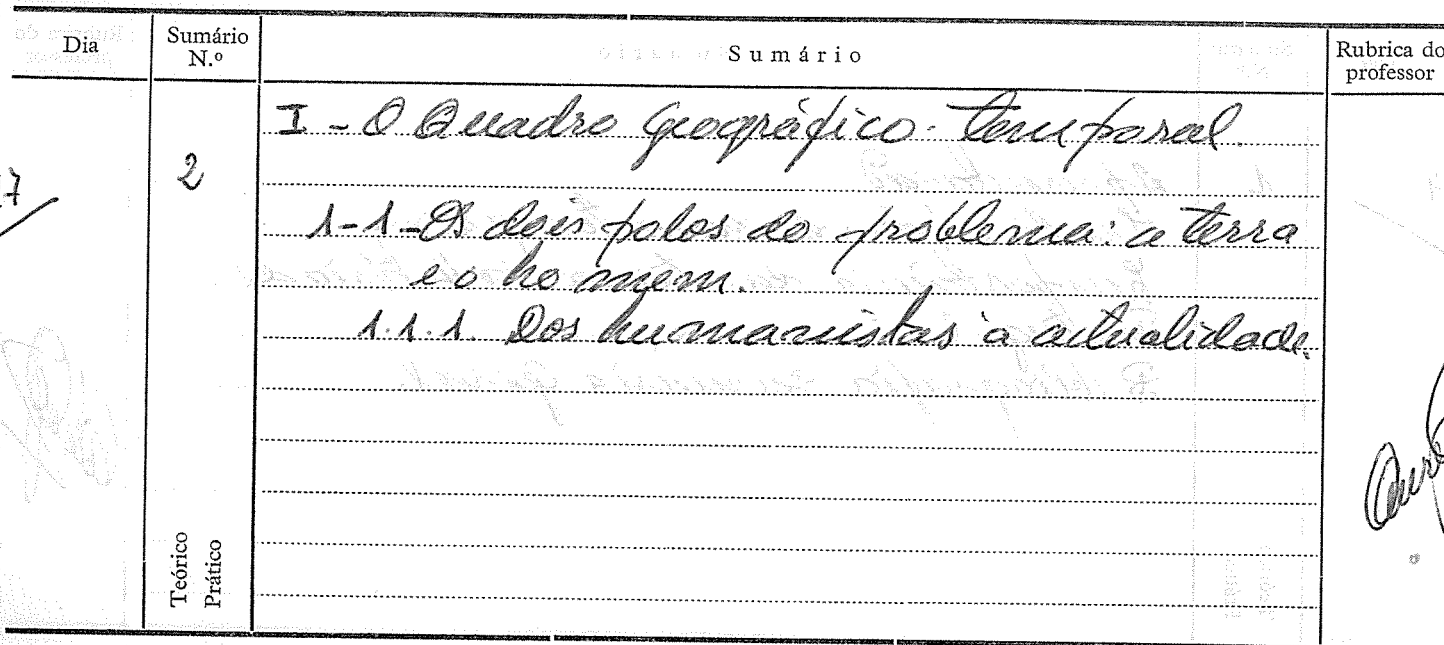 Dia Sumário N.º Sumário Rubrica do professor
7 2
I - O Quadro Geográfico-temporal.
1-1-Os dois polos do problema: a terra
e o homem.
1.1.1. Dos humanistas à actualidade.
Teórico
Prático